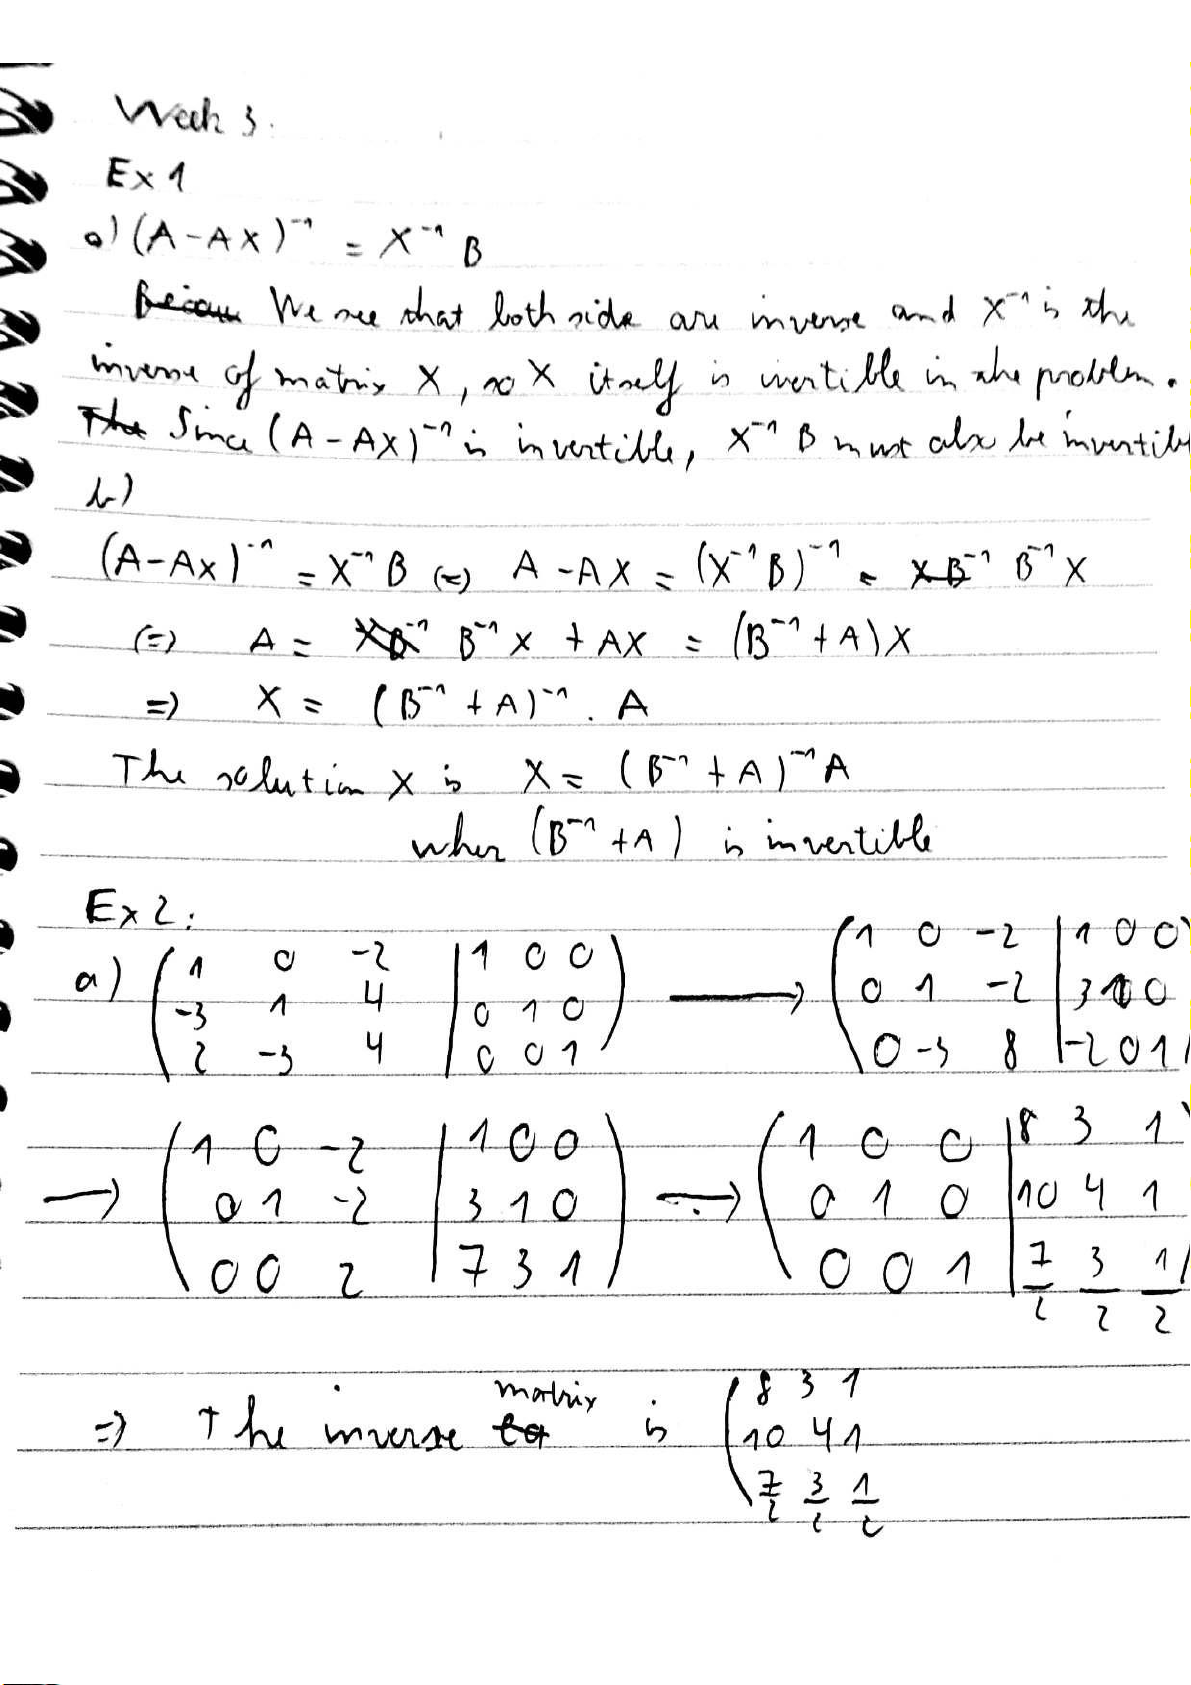 Week 3.
Ex 1
a) (A-AX)⁻¹ = X⁻¹ B
We see that both side are inverse and X⁻¹ is the
inverse of matrix X, so X itself is invertible in the problem.
Since (A-AX)⁻¹ is invertible, X⁻¹ B must also be invertibl
b)
(A-AX)⁻¹ = X⁻¹ B (=) A-AX = (X⁻¹B)⁻¹ = B⁻¹ X
(=) A = B⁻¹ X + AX = (B⁻¹ + A) X
=) X = (B⁻¹ + A)⁻¹ . A
The solution X is X = (B⁻¹ + A)⁻¹ A
when (B⁻¹ + A) is invertible
Ex 2:
a) ( 1 0 -2 | 1 0 0 ) → ( 1 0 -2 | 1 0 0 )
-3 1 4 | 0 1 0 0 1 -2 | 3 1 0
2 -3 4 | 0 0 1 0 -3 8 | -2 0 1
→ ( 1 0 -2 | 1 0 0 ) → ( 1 0 0 | 8 3 1
0 1 -2 | 3 1 0 0 1 0 | 10 4 1
0 0 2 | 7 3 1 0 0 1 | 7/2 3/2 1/2
=) The inverse matrix is ( 8 3 1
10 4 1
7/2 3/2 1/2